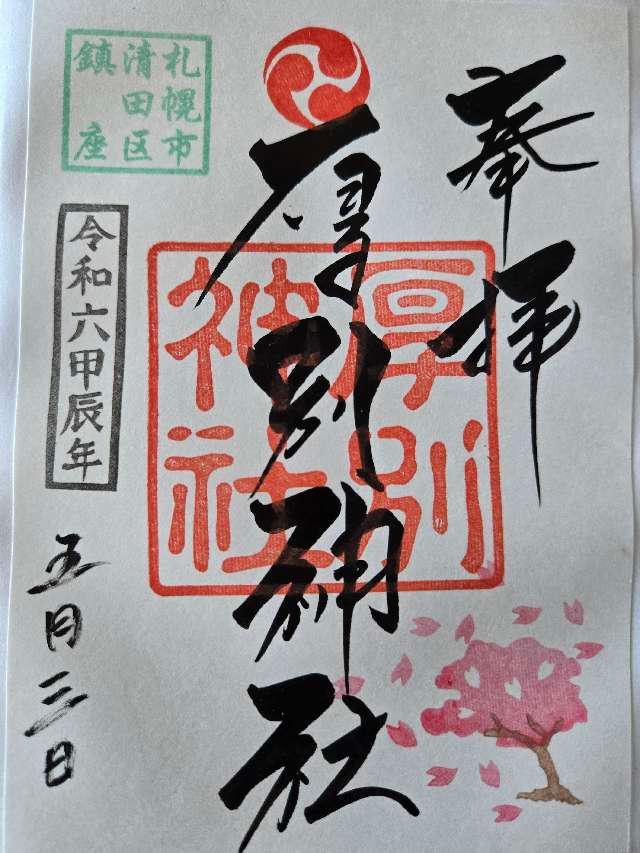 奉拝
厚別神社
厚別
神社
札幌市
清田区
鎮座
令和六甲辰年
五月三日